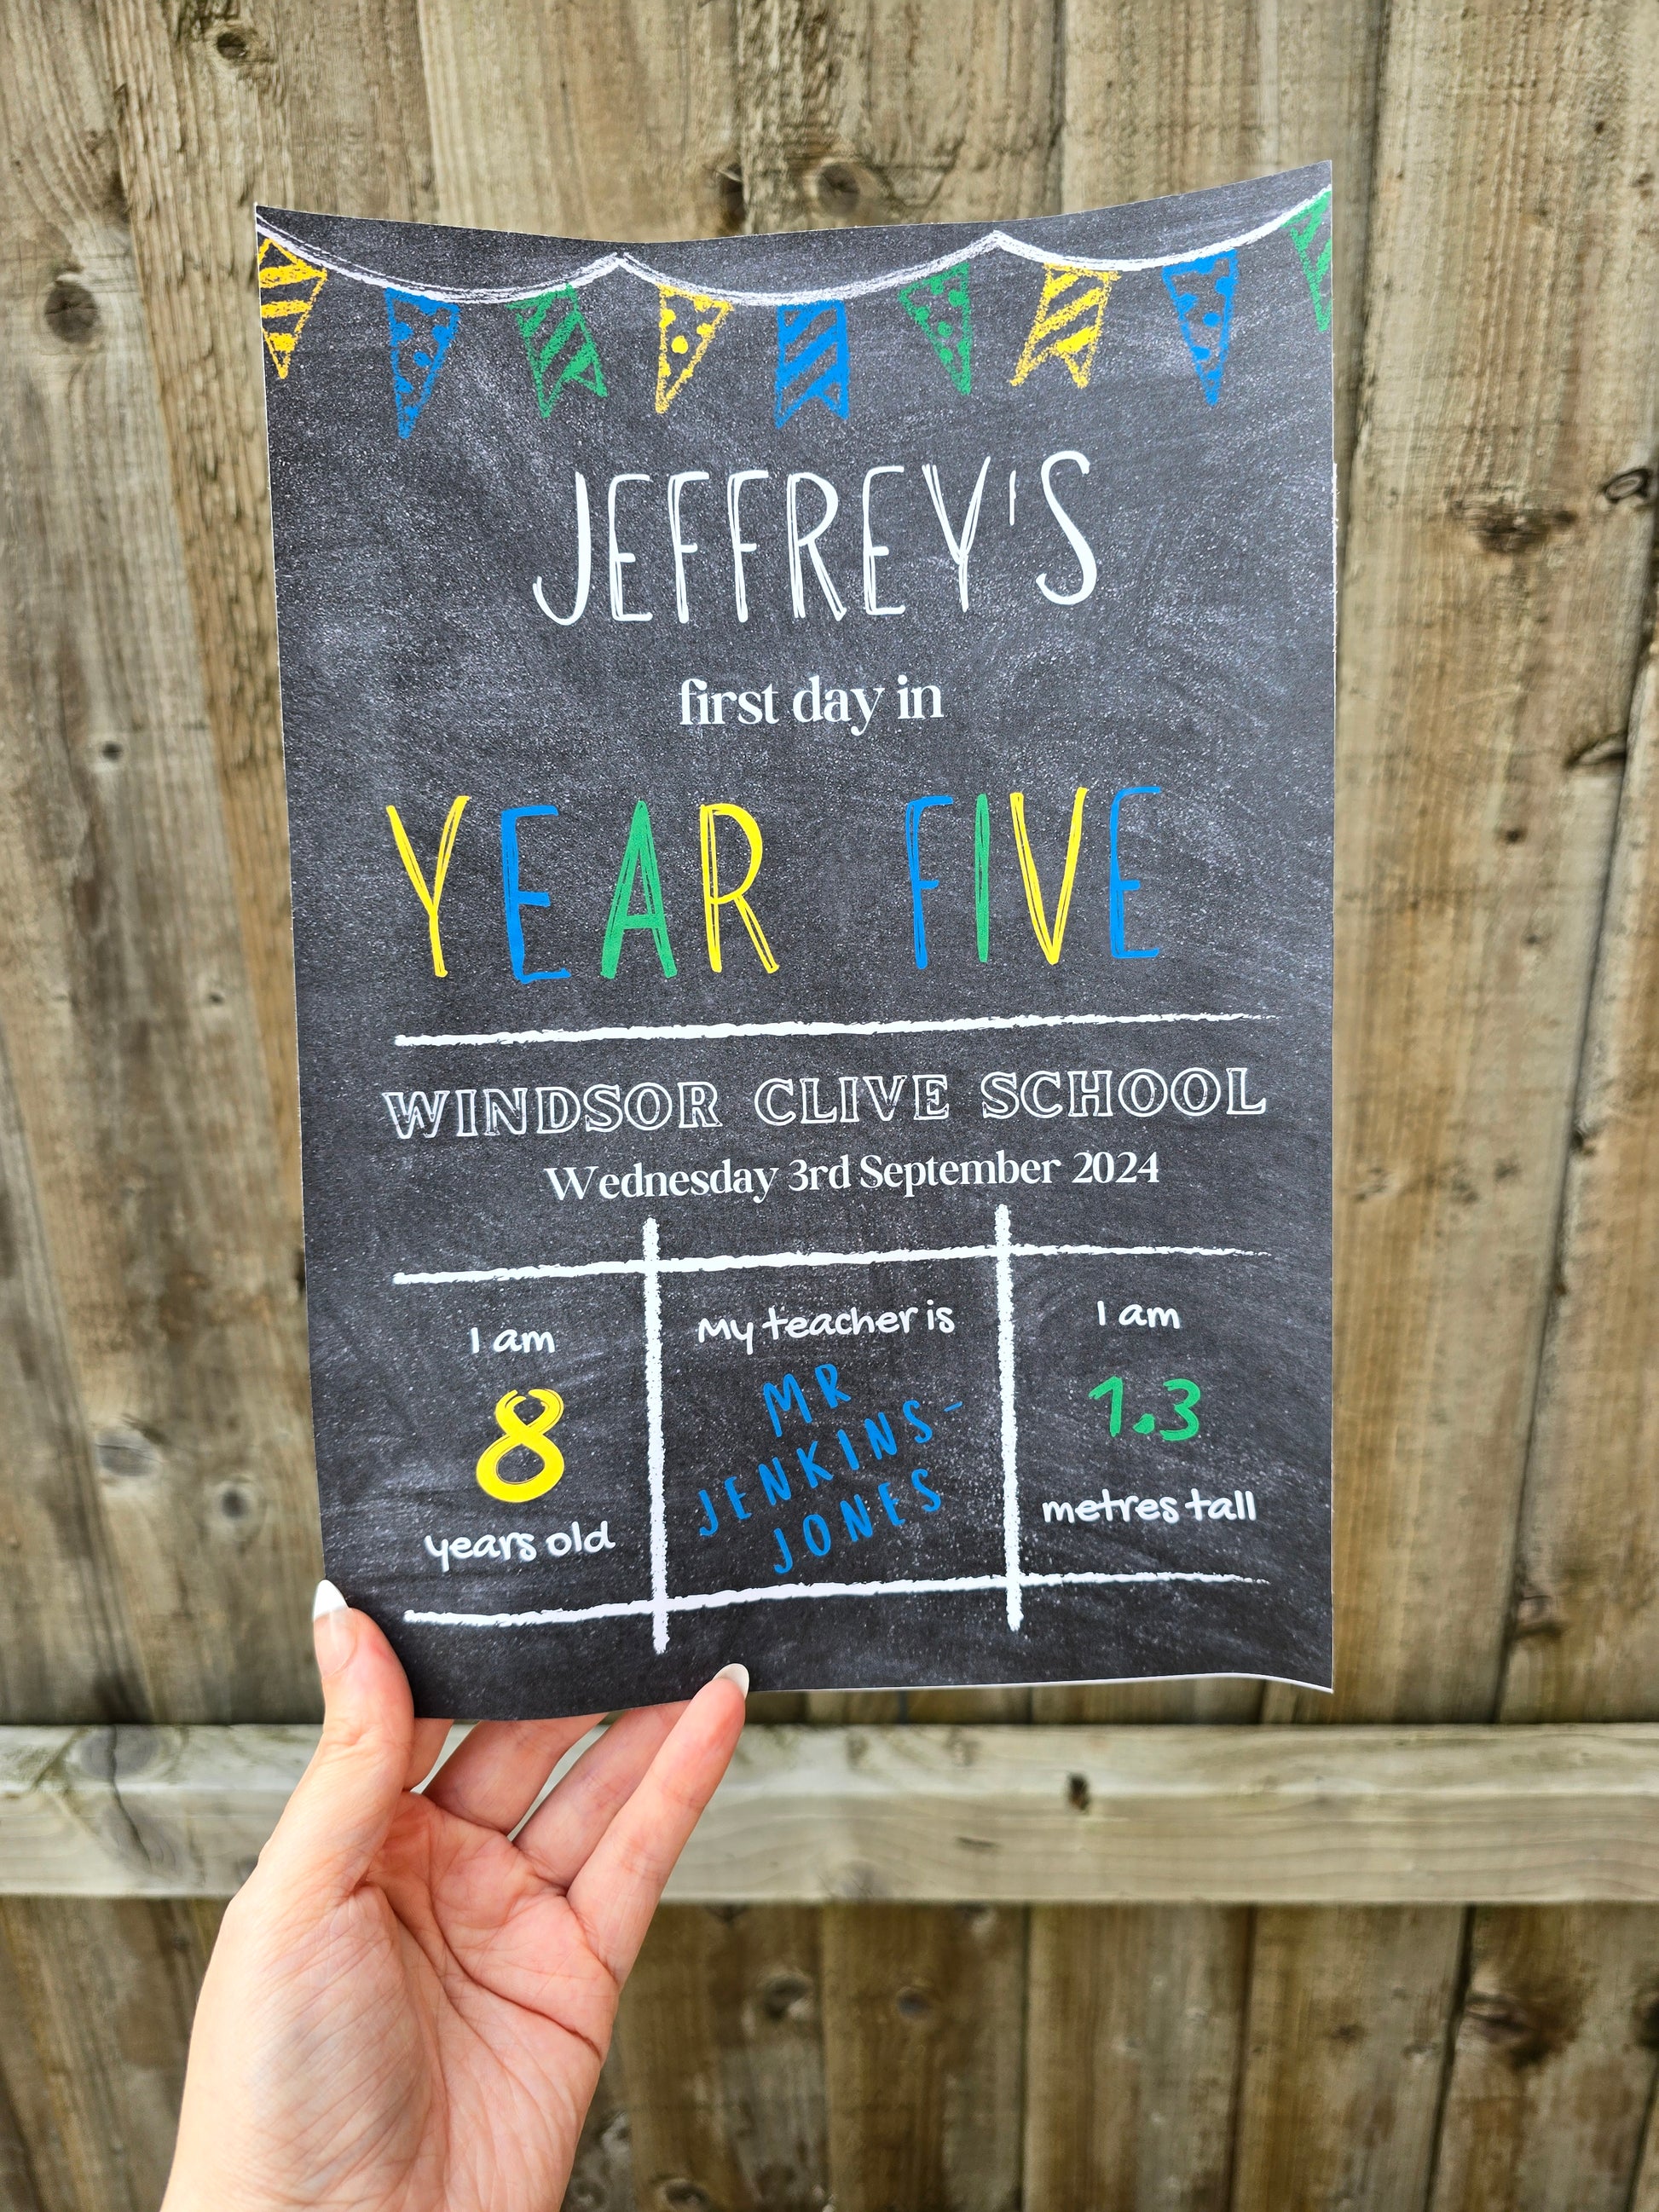 JEFFREY'S
first day in
YEAR FIVE
WINDSOR CLIVE SCHOOL
Wednesday 3rd September 2024
I am
8
years old
My teacher is
MR
JENKINS-
JONES
I am
1.3
metres tall